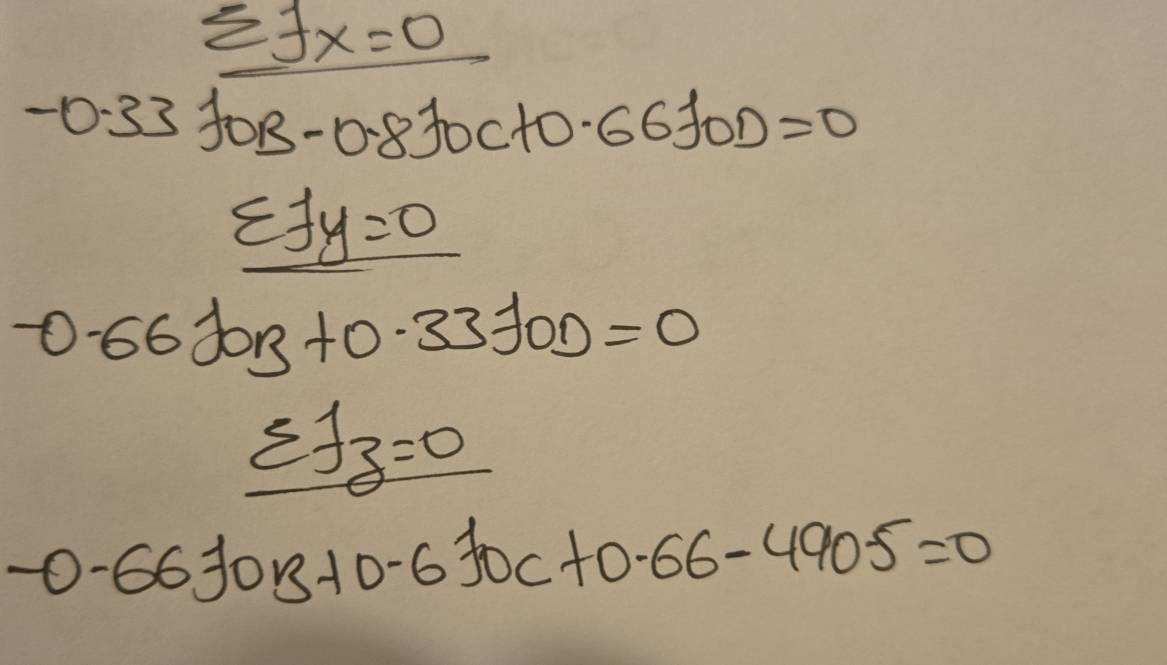 Σfx=0
-0.33 fOB-0.8fOC+0.66fOD=0
Σfy=0
-0.66fOB+0.33fOD=0
Σfz=0
-0.66fOB+0.6fOC+0.66-4905=0